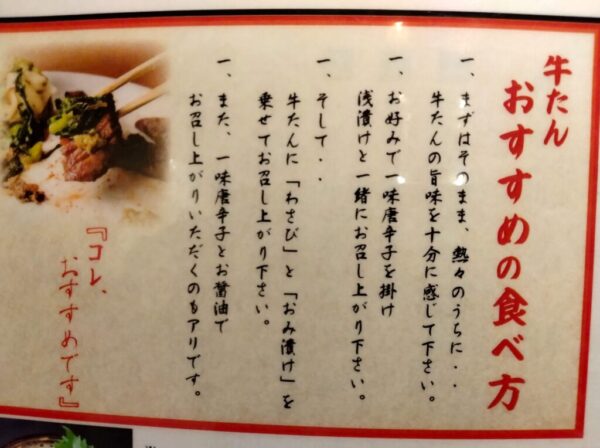 牛たん
おすすめの食べ方
一、まずはそのまま、熱々のうちに・・
牛たんの旨味を十分に感じて下さい。
一、お好みで一味唐辛子を掛け
浅漬けと一緒にお召し上がり下さい。
一、そして・・
牛たんに「わさび」と「おみ漬け」を
乗せてお召し上がり下さい。
一、また、一味唐辛子とお醤油で
お召し上がりいただくのもアリです。
『コレ、
おすすめです』